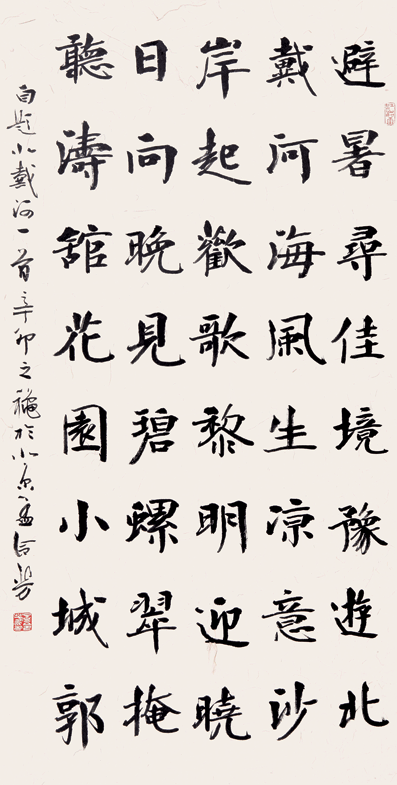 避暑尋佳境豫遊北
戴河海風生凉意沙
岸起歡歌黎明迎曉
日向晚見碧螺翠掩
聽濤舘花園小城郭
自題北戴河一首辛卯之穐於北京孟